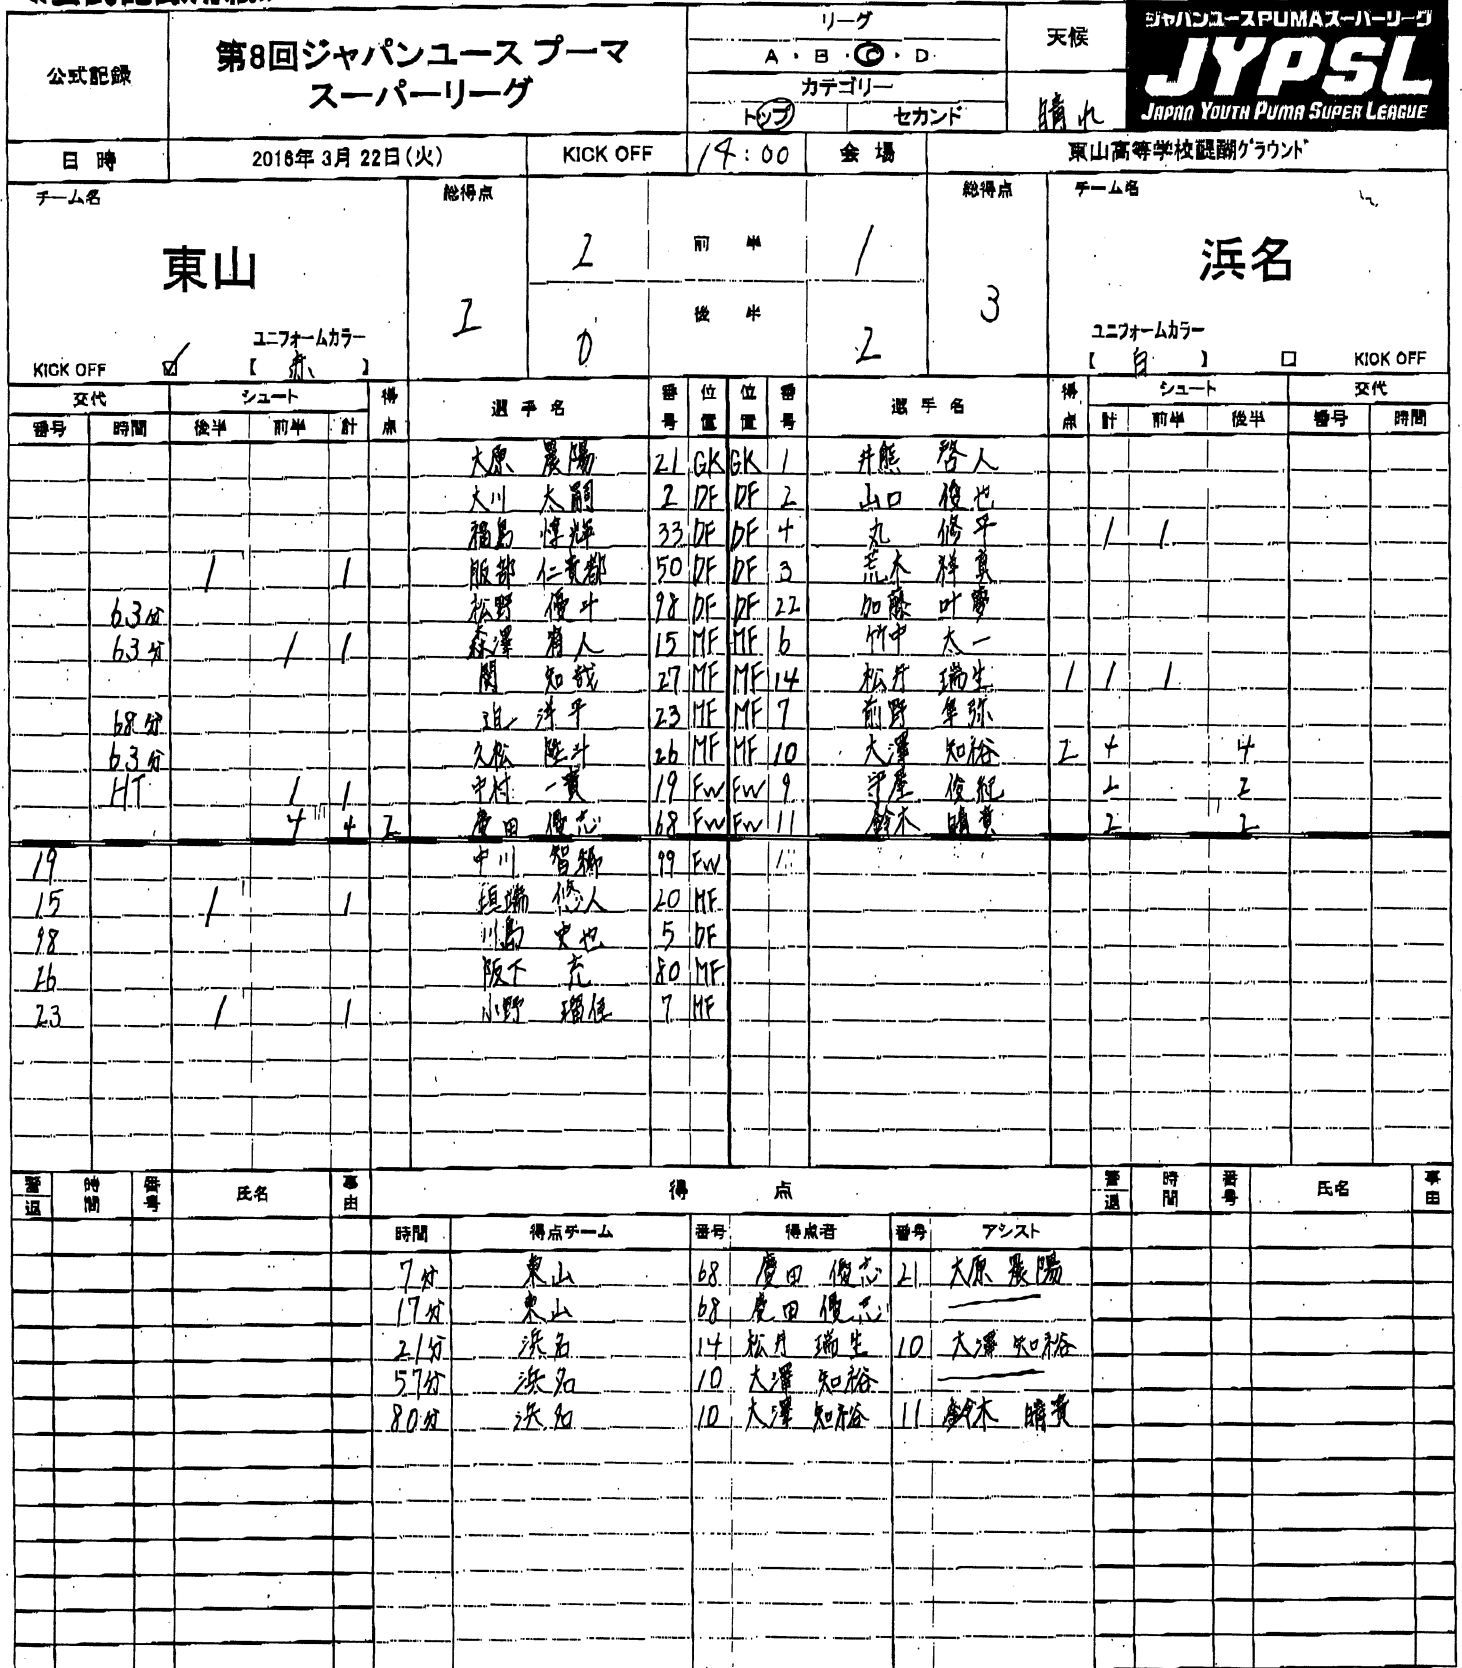 公式記録
第8回ジャパンユース プーマ
スーパーリーグ
リーグ
A・B・C・D
カテゴリー
トップ セカンド
天候
晴れ
ジャパンユースPUMAスーパーリーグ
JYPSL
JAPAN YOUTH PUMA SUPER LEAGUE
日時 2016年3月22日(火) KICK OFF 14:00 会場 東山高等学校醍醐グラウンド
チーム名 総得点 総得点 チーム名
東山 2 2 前半 1 3 浜名
0 後半 2
ユニフォームカラー ユニフォームカラー
KICK OFF 【 赤 】 【 白 】 KICK OFF
交代 シュート 得点 選手名 番号 位置 位置 番号 選手名 得点 シュート 交代
番号 時間 後半 前半 計 計 前半 後半 番号 時間
大原 21 GK GK 1 井熊 啓人
大川 太嗣 2 DF DF 2 山口 俊也
福島 惇輝 33 DF DF 4 丸 修平 1 1
1 1 服部 仁貴都 50 DF DF 3 荒木 祥真
63分 松野 優斗 98 DF DF 22 加藤 叶夢
63分 1 1 森澤 15 MF MF 6 竹中 太一
関 知哉 27 MF MF 14 松丹 瑞生 1 1 1
68分 迫 洋平 23 MF MF 7 前野 隼弥
63分 久松 陸斗 26 MF MF 10 大澤 知裕 2 4 4
HT 1 1 中村 一貴 19 FW FW 9 守屋 俊紀 2 2
4 4 2 慶田 優志 68 FW FW 11 鈴木 晴貴 2 2
19 中川 智郷 99 FW
15 1 1 垣端 悠人 20 MF
98 川島 史也 5 DF
26 阪下 充 80 MF
23 1 1 小野 瑠佳 7 MF
警退 時間 番号 氏名 事由 得点 警退 時間 番号 氏名 事由
時間 得点チーム 番号 得点者 番号 アシスト
7分 東山 68 慶田 優志 21 大原
17分 東山 68 慶田 優志
21分 浜名 14 松丹 瑞生 10 大澤 知裕
57分 浜名 10 大澤 知裕
80分 浜名 10 大澤 知裕 11 鈴木 晴貴